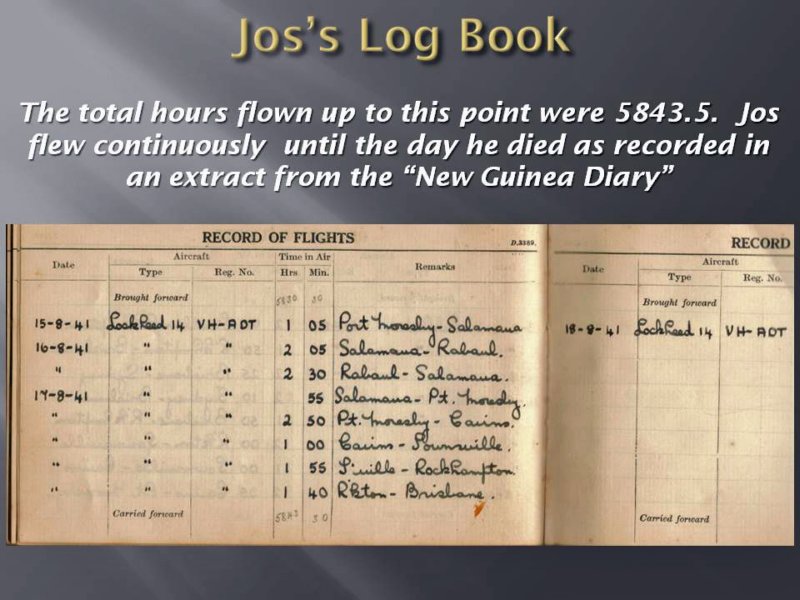 Jos's Log Book
The total hours flown up to this point were 5843.5. Jos
flew continuously until the day he died as recorded in
an extract from the "New Guinea Diary"
RECORD OF FLIGHTS D.3389.
Date Aircraft Time in Air Remarks
Type Reg. No. Hrs Min.
Brought forward 5830 30
15-8-41 Lockheed 14 VH-ADT 1 05 Port Moresby-Salamaua
16-8-41 " " 2 05 Salamaua-Rabaul.
" " " 2 30 Rabaul-Salamaua.
17-8-41 " " 55 Salamaua-Pt. Moresby.
" " " 2 50 Pt. Moresby-Cairns.
" " " 1 00 Cairns-Townsville.
" " " 1 55 T'ville-Rockhampton
" " " 1 40 R'kton-Brisbane.
Carried forward 5843 30
RECORD
Date Aircraft
Type Reg. No.
Brought forward
18-8-41 Lockheed 14 VH-ADT
Carried forward